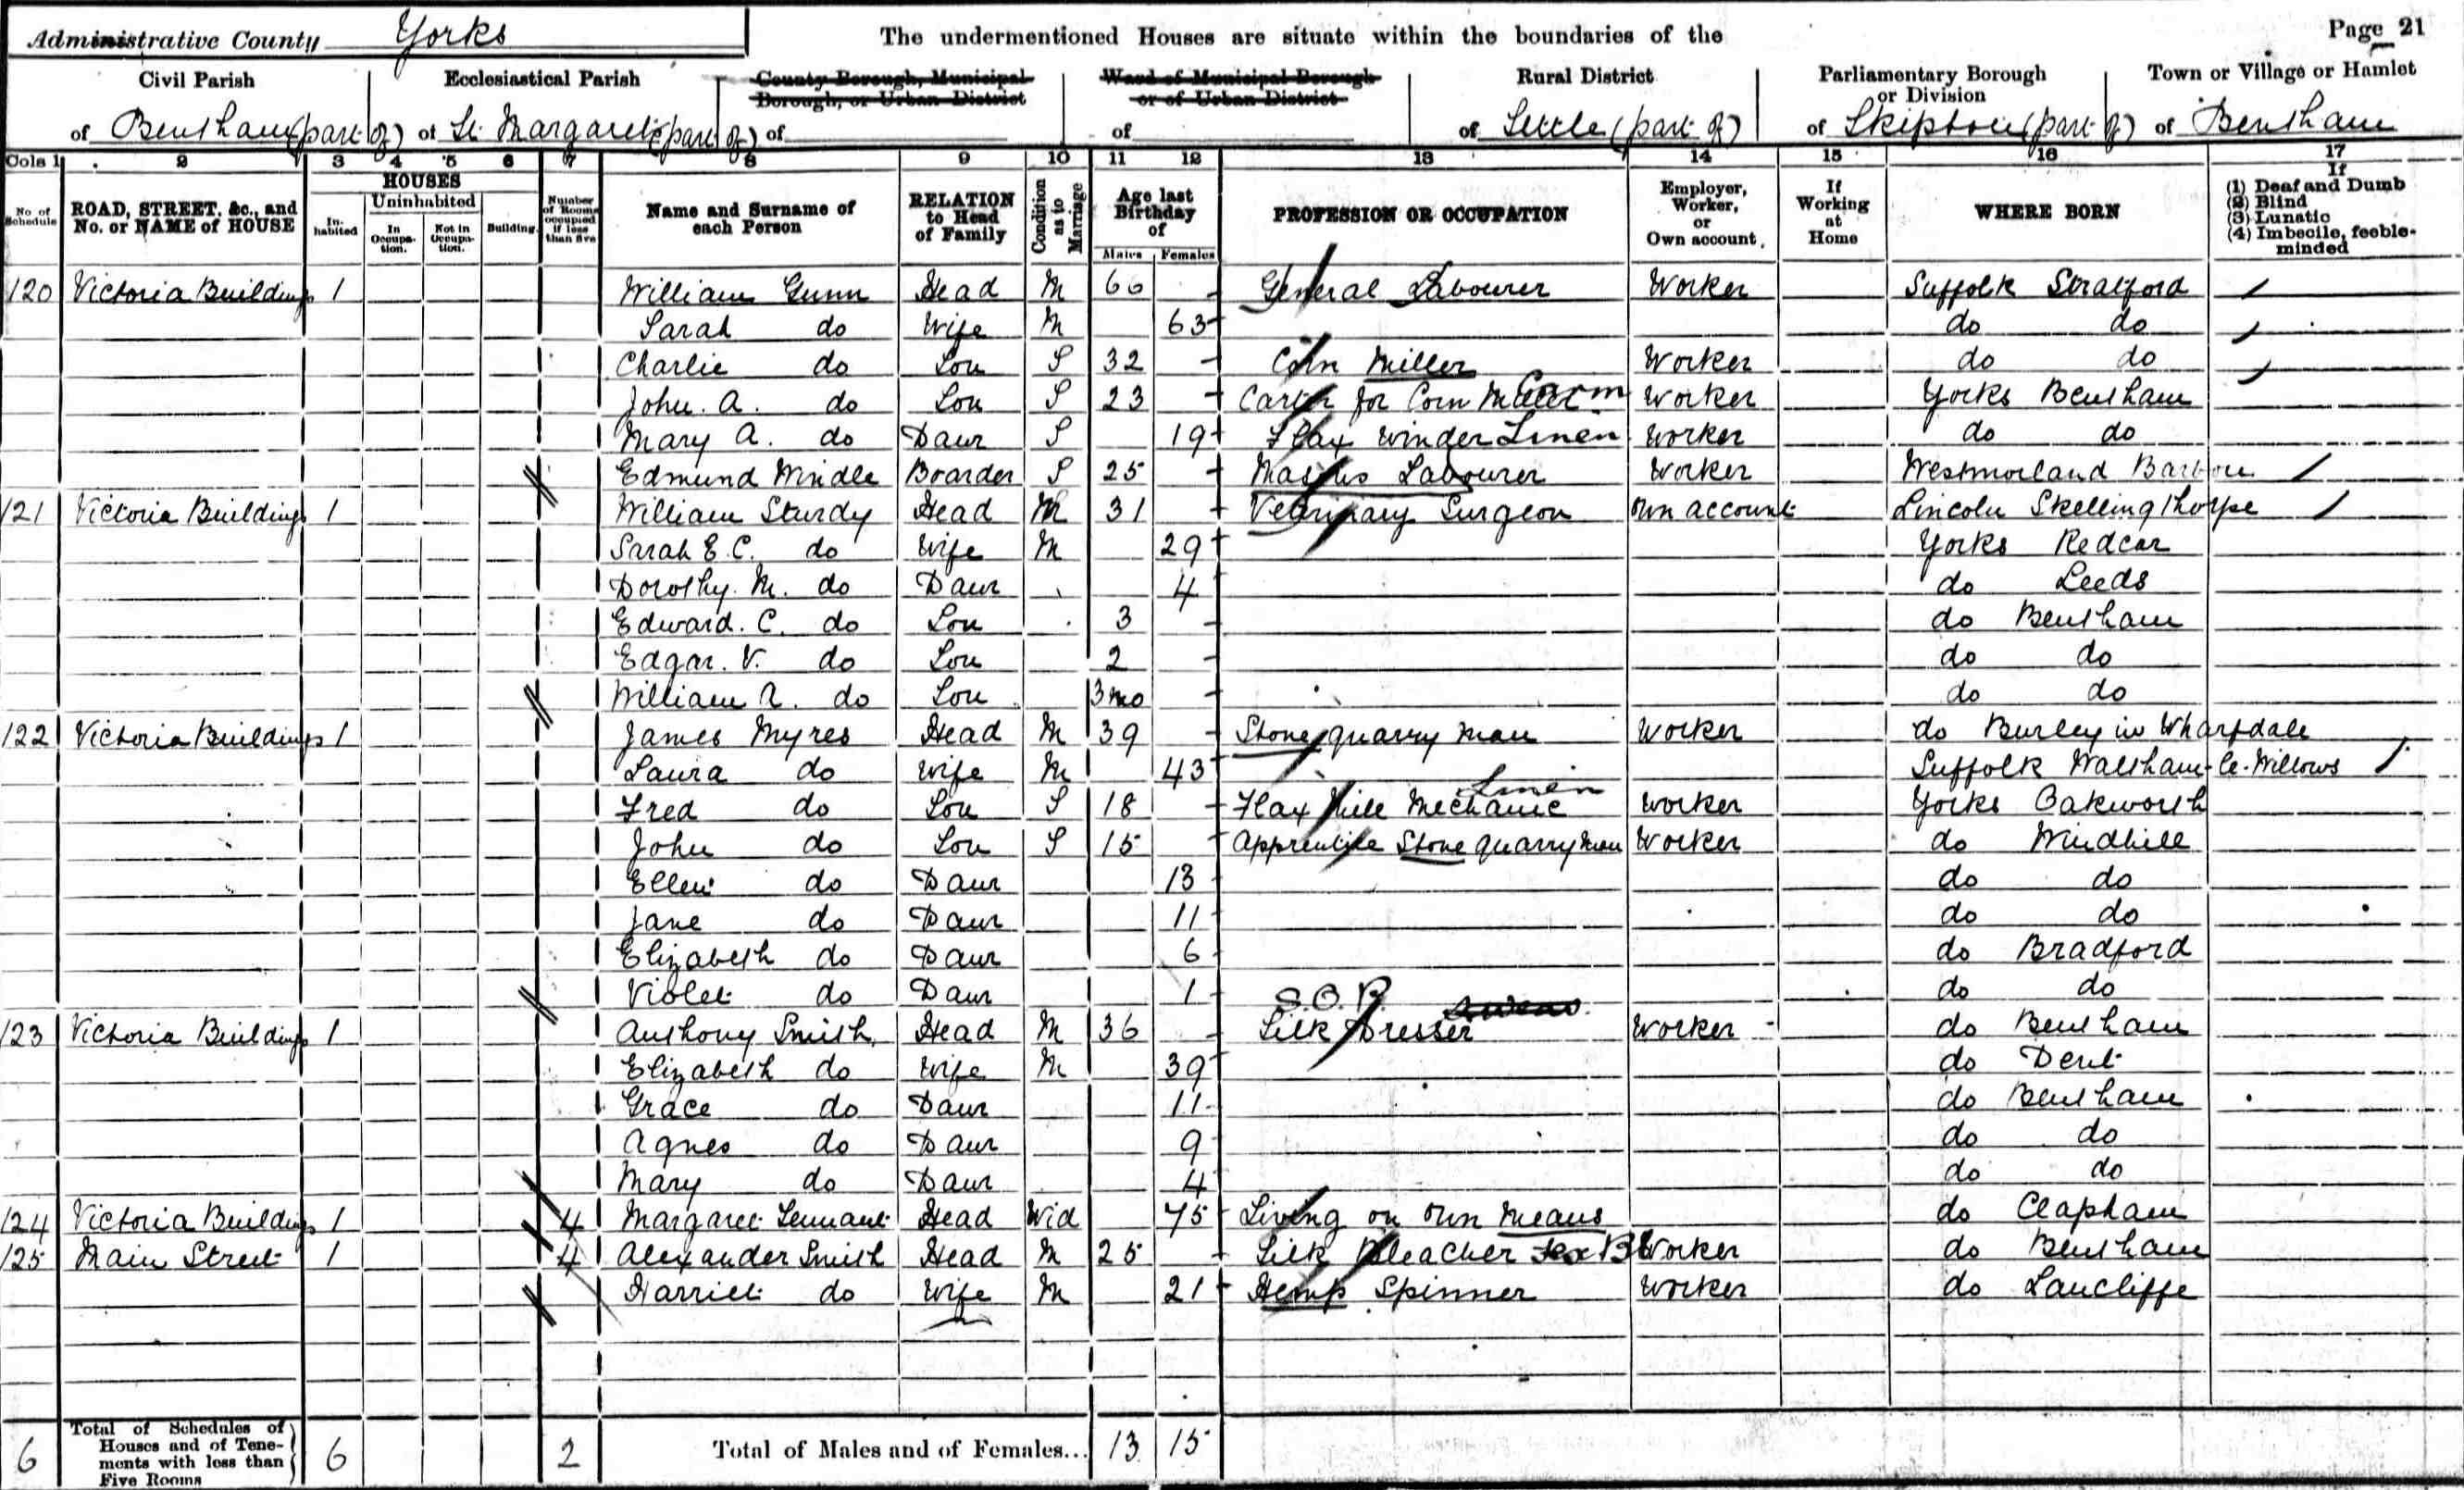 Page 21
Administrative County Yorks
The undermentioned Houses are situate within the boundaries of the
Civil Parish
of Bentham (part of)
Ecclesiastical Parish
of St. Margarets (part of)
County Borough, Municipal Borough, or Urban District
of
Ward of Municipal Borough or of Urban District
of
Rural District
of Settle (part of)
Parliamentary Borough or Division
of Skipton (part of)
Town or Village or Hamlet
of Bentham
Cols 1 2 3 4 5 6 7 8 9 10 11 12 13 14 15 16 17
No of Schedule
ROAD, STREET, &c., and No. or NAME of HOUSE
HOUSES
Inhabited
Uninhabited
In Occupation.
Not in Occupation.
Building.
Number of Rooms occupied if less than five
Name and Surname of each Person
RELATION to Head of Family
Condition as to Marriage
Age last Birthday of
Males Females
PROFESSION OR OCCUPATION
Employer, Worker, or Own account
If Working at Home
WHERE BORN
If
(1) Deaf and Dumb
(2) Blind
(3) Lunatic
(4) Imbecile, feeble-minded
120 Victoria Buildings 1 William Gunn Head M 66 General Labourer Worker Suffolk Stratford
Sarah do Wife M 63 do do
Charlie do Son S 32 Corn Miller Worker do do
John. A. do Son S 23 Carter for Corn Miller Worker Yorks Bentham
Mary A. do Daur S 19 Flax Winder Linen Worker do do
Edmund Windle Boarder S 25 Masons Labourer Worker Westmorland Barbon
121 Victoria Buildings 1 William Sturdy Head M 31 Veterinary Surgeon Own account Lincoln Skellingthorpe
Sarah E. C. do Wife M 29 Yorks Redcar
Dorothy. M. do Daur 4 do Leeds
Edward. C. do Son 3 do Bentham
Edgar. V. do Son 2 do do
William A. do Son 3 mo do do
122 Victoria Buildings 1 James Myres Head M 39 Stone quarry man Worker do Burley in Wharfdale
Laura do Wife M 43 Suffolk Walsham-le-Willows
Fred do Son S 18 Flax Mill Mechanic Linen Worker Yorks Oakworth
John do Son S 15 Apprentice Stone quarryman Worker do Windhill
Ellen do Daur 13 do do
Jane do Daur 11 do do
Elizabeth do Daur 6 do Bradford
Violet do Daur 1 do do
123 Victoria Buildings 1 Anthony Smith Head M 36 Silk Dresser Worker do Bentham
Elizabeth do Wife M 39 do Dent
Grace do Daur 11 do Bentham
Agnes do Daur 9 do do
Mary do Daur 4 do do
124 Victoria Buildings 1 4 Margaret Tennant Head Wid 75 Living on own Means do Clapham
125 Main Street 1 4 Alexander Smith Head M 25 Silk Bleacher Worker do Bentham
Harriet do Wife M 21 Hemp Spinner Worker do Lancliffe
6 Total of Schedules of Houses and of Tenements with less than Five Rooms 6 2 Total of Males and of Females... 13 15